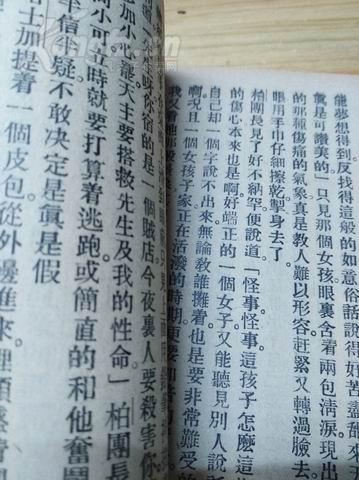 能夢想得到這般的如意俗話說得好苦盡甜來
眞是可讚美的「只見那個女孩眼裏含着兩包淸淚現出
的那種傷痛的氣象眞是教人難以形容趕緊又轉過臉去。
眼用手巾仔細擦乾身去了。
柏團長見了好不納罕便說道「怪事怪事。這孩子怎麽這
的傷心本來也是啊好端正的一個女子又能聽見別人說
自己却一個字說不出來無論教誰攤着也是要非常難受的
啊况且一個女孩子家正在活潑的時期更要
我又看他那般
你宿的是一個賊店今夜裏人要殺害你。
您加小心罷天主要搭救先生及我的性命」柏團長
小可立時就要打算着逃跑或簡直的和他奮鬭
半信半疑不敢决定是眞是假
士加提着一個皮包從外邊進來。裡頭盛着